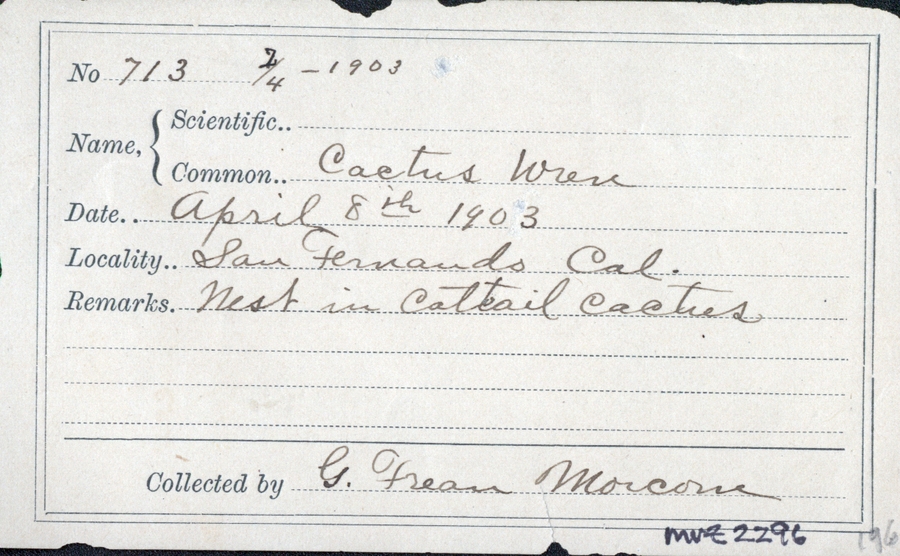 No 713 2/4 - 1903
Name, { Scientific..
Common.. Cactus Wren
Date.. April 8th 1903
Locality.. San Fernando Cal.
Remarks. Nest in Cattail Cactus
Collected by G. Frean Morcom
MVZ 2296 196